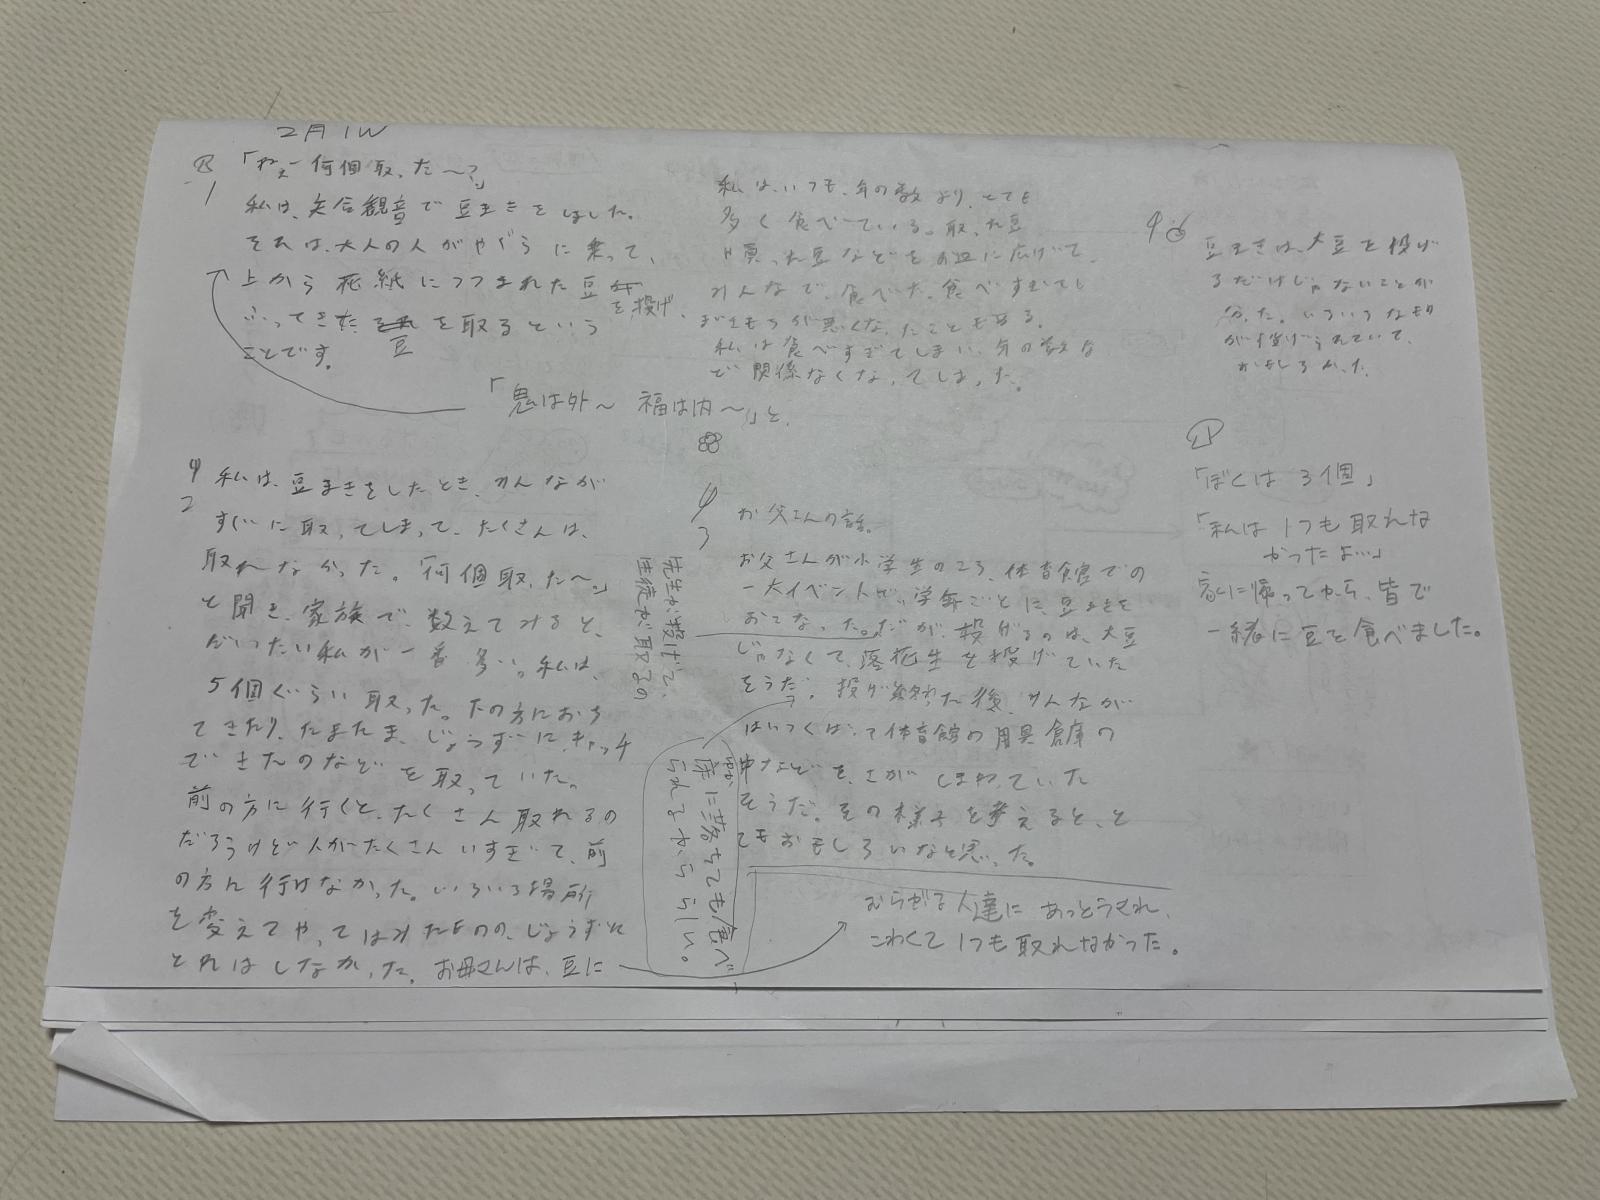 2月1W
「ねぇー何個取った〜?」
1
私は、矢合観音で豆まきをしました。
それは、大人の人がやぐらに乗って、
上から花紙につつまれた豆を投げ、
ふってきた豆を取るという
ことです。
「鬼は外〜 福は内〜」と、
2
私は、豆まきをしたとき、みんなが
すぐに取ってしまって、たくさんは、
取れなかった。「何個取った〜」
と聞き、家族で、数えてみると、
だいたい私が一番多い。私は、
5個ぐらい取った。下の方におち
てきたり、たまたま、じょうずにキャッチ
できたのなどを取っていた。
前の方に行くと、たくさん取れるの
だろうけど人がたくさんいすぎて、前
の方に行けなかった。いろいろ場所
を変えてやってはみたものの、じょうずに
とれはしなかった。お母さんは、豆に
むらがる人達にあっとうされ、
こわくて1つも取れなかった。
私は、いつも、年の数より、とても
多く食べている。取った豆
買った豆などをお皿に広げて、
みんなで、食べた。食べすぎてし
私は食べすぎてしまい、年の数な
ど関係なくなってしまった。
3
お父さんの話。
お父さんが小学生のころ、体育館での
一大イベントで、学年ごとに豆まきを
おこなった。だが、投げるのは、大豆
じゃなくて、落花生を投げていた
そうだ。投げ終わった後、みんなが
はいつくばって体育館の用具倉庫の
中などを、さがしまわっていた
そうだ。その様子を考えると、と
てもおもしろいなと思った。
先生が投げて、
生徒が取るの
ゆか
床に落ちても食べ
られるかららしい。
豆まきは、大豆を投げ
るだけじゃないことが
分かった。いろいろなもの
が投げられていて、
おもしろかった。
「ぼくは3個」
「私は1つも取れな
かったよ…」
家に帰ってから、皆で
一緒に豆を食べました。